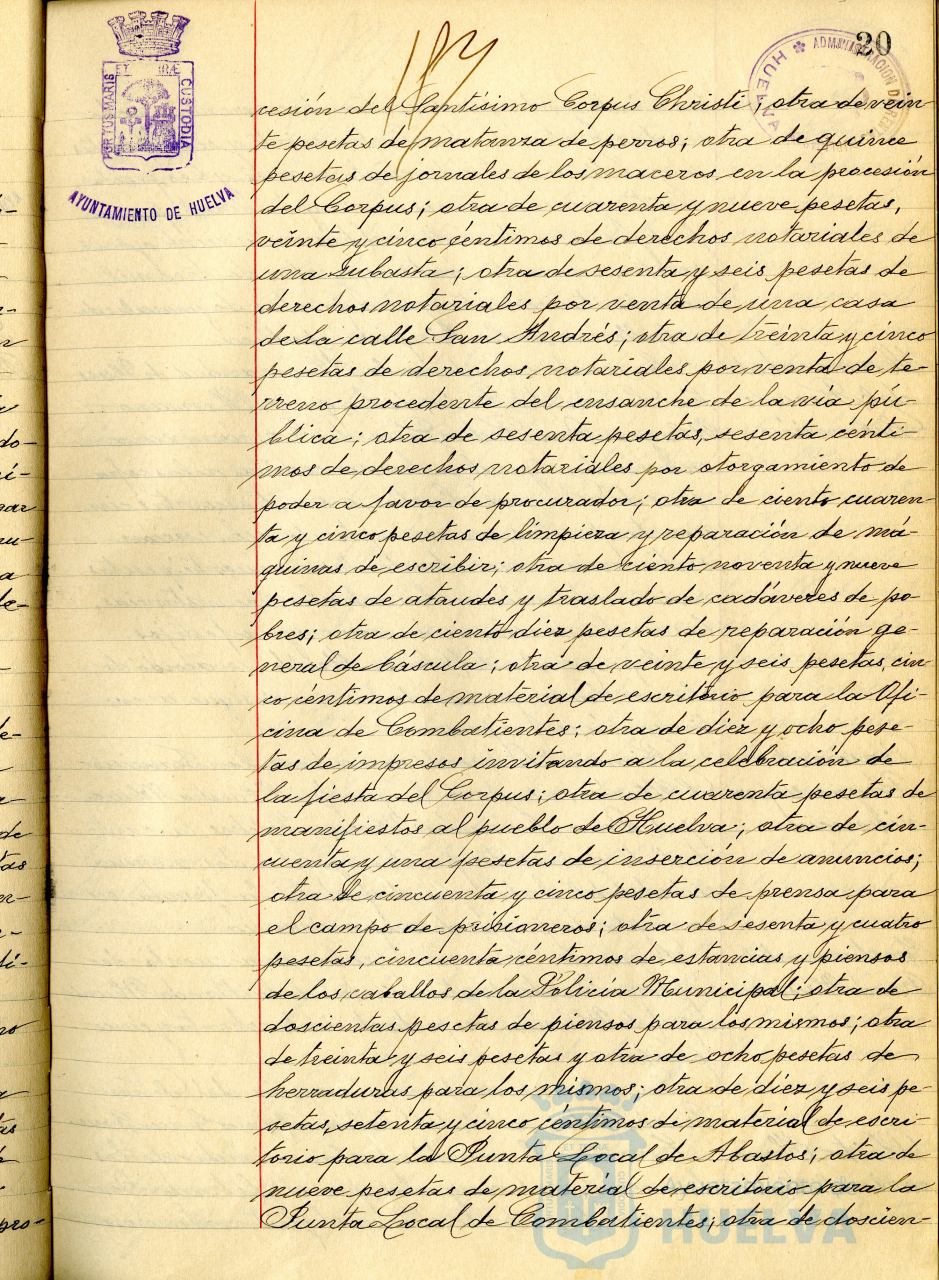 183
20
ADMINISTRACION DE RENTAS
HUELVA
PORTUS MARIS ET TERRÆ CUSTODIA
AYUNTAMIENTO DE HUELVA
cesión del Santísimo Corpus Christi; otra de vein
te pesetas de matanza de perros; otra de quince
pesetas de jornales de los maceros en la procesión
del Corpus; otra de cuarenta y nueve pesetas,
veinte y cinco céntimos de derechos notariales de
una subasta; otra de sesenta y seis pesetas de
derechos notariales por venta de una casa
de la calle San Andrés; otra de treinta y cinco
pesetas de derechos notariales por venta de te-
rreno procedente del ensanche de la vía pú-
blica; otra de sesenta pesetas, sesenta cénti-
mos de derechos notariales por otorgamiento de
poder a favor de procurador; otra de ciento cuaren-
ta y cinco pesetas de limpieza y reparación de má-
quinas de escribir; otra de ciento noventa y nueve
pesetas de ataudes y traslado de cadáveres de po-
bres; otra de ciento diez pesetas de reparación ge-
neral de báscula; otra de veinte y seis pesetas, cin
co céntimos de material de escritorio para la Ofi-
cina de Combatientes; otra de diez y ocho pese-
tas de impresos invitando a la celebración de
la fiesta del Corpus; otra de cuarenta pesetas de
manifiestos al pueblo de Huelva; otra de cin-
cuenta y una pesetas de inserción de anuncios;
otra de cincuenta y cinco pesetas de prensa para
el campo de prisioneros; otra de sesenta y cuatro
pesetas, cincuenta céntimos de estancias y piensos
de los caballos de la Policía Municipal; otra de
doscientas pesetas de piensos para los mismos; otra
de treinta y seis pesetas y otra de ocho pesetas de
herraduras para los mismos; otra de diez y seis pe-
setas, setenta y cinco céntimos de material de escri-
torio para la Junta Local de Abastos; otra de
nueve pesetas de material de escritorio para la
Junta Local de Combatientes; otra de doscien-
HUELVA